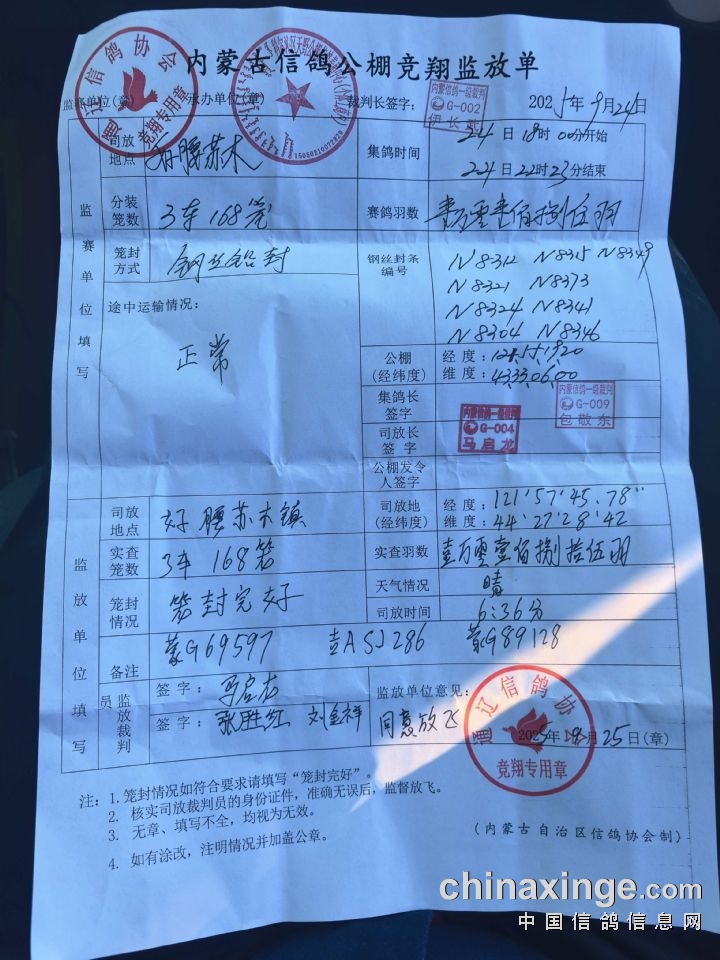 内蒙古信鸽公棚竞翔监放单
监赛单位(章) 承办单位(章) 裁判长签字: 2025年9月24日
通辽信鸽协会
竞翔专用章
15050210072820
内蒙信鸽一级裁判
G-002
司放地点 好腰苏木
集鸽时间 24日18时00分开始
24日22时23分结束
监赛单位填写
分装笼数 3车168笼
赛鸽羽数 壹万零壹佰捌拾伍羽
笼封方式 钢丝铅封
钢丝封条编号 N8312 N8315 N8349
N8321 N8373
N8324 N8341
N8304 N8346
途中运输情况:
正常
公棚(经纬度) 经度:
维度: 43.33.06.00
集鸽长签字
内蒙信鸽一级裁判
G-009
包敬东
司放长签字
内蒙信鸽一级裁判
G-004
马启龙
公棚发令人签字
监放单位填写
司放地点 好腰苏木镇
司放地(经纬度) 经度: 121'57'45.78"
维度: 44'27'28'42
实查笼数 3车168笼
实查羽数 壹万零壹佰捌拾伍羽
笼封情况 笼封完好
天气情况 晴
司放时间 6:36分
备注 蒙G69597 吉ASJ286 蒙G89128
监放裁判员
签字: 马启龙
签字: 张胜红 刘金祥
监放单位意见:
同意放飞
2025年9月25日(章)
通辽信鸽协会
竞翔专用章
注: 1. 笼封情况如符合要求请填写“笼封完好”。
2. 核实司放裁判员的身份证件，准确无误后，监督放飞。
3. 无章、填写不全，均视为无效。
4. 如有涂改，注明情况并加盖公章。
(内蒙古自治区信鸽协会制)
chinaxinge.com
中国信鸽信息网